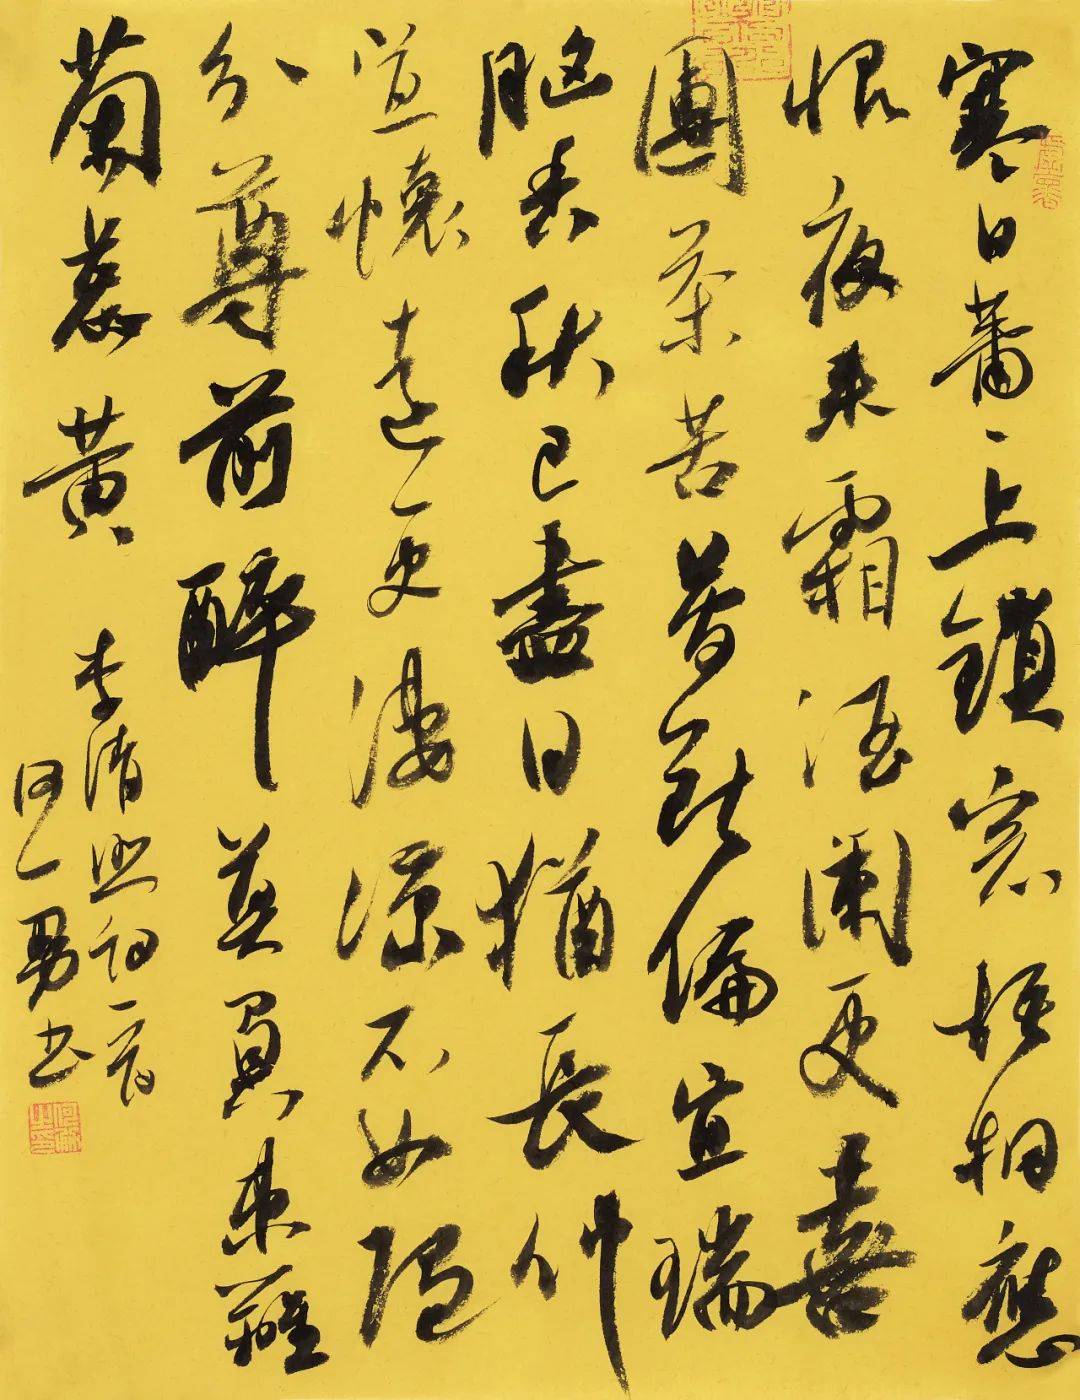 寒日蕭々上鎖窓梧桐應
恨夜来霜酒闌更喜
團茶苦夢断偏宜瑞
腦香秋已盡日猶長仲
宣懷遠更淒涼不如隨
分尊前醉莫負東籬
菊蕊黄 李清照詞一首
何勇書